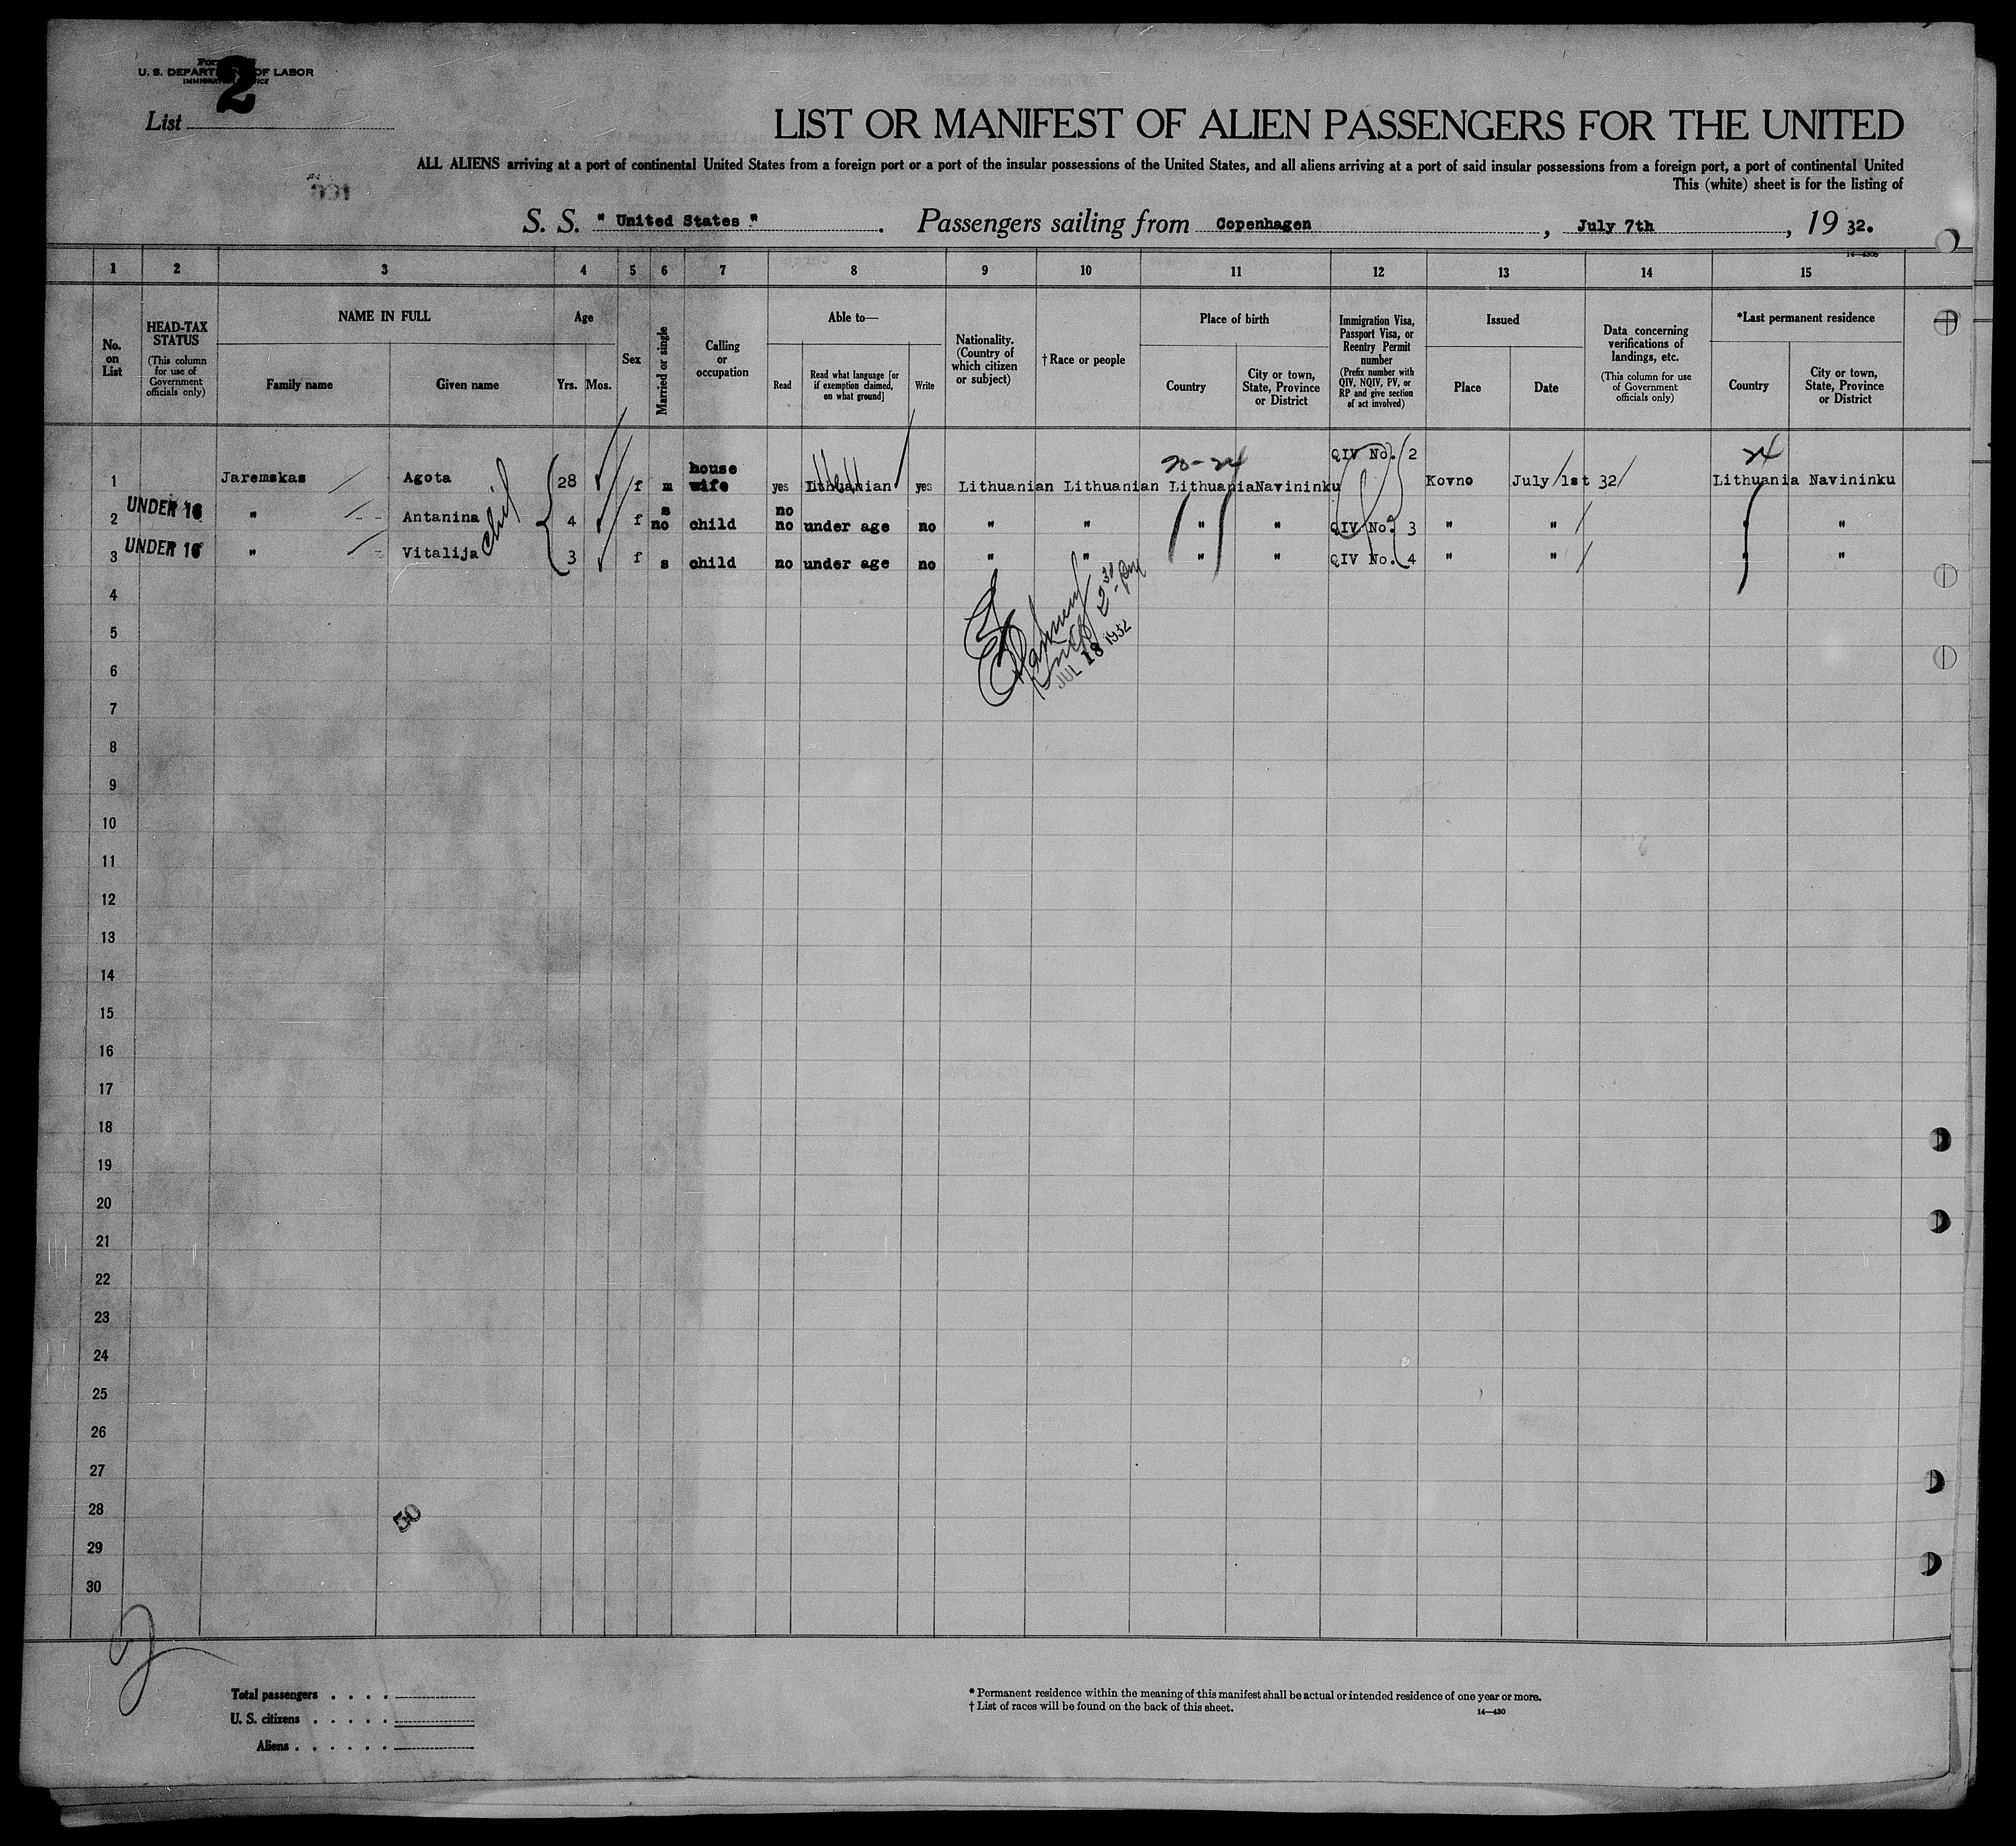 2
U. S. DEPARTMENT OF LABOR
List
LIST OR MANIFEST OF ALIEN PASSENGERS FOR THE UNITED
ALL ALIENS arriving at a port of continental United States from a foreign port or a port of the insular possessions of the United States, and all aliens arriving at a port of said insular possessions from a foreign port, a port of continental United
This (white) sheet is for the listing of
S. S. " United States " . Passengers sailing from Copenhagen , July 7th , 19 32.
1 2 3 4 5 6 7 8 9 10 11 12 13 14 15
No. on List
HEAD-TAX STATUS
(This column for use of Government officials only)
NAME IN FULL
Family name
Given name
Age
Yrs. Mos.
Sex
Married or single
Calling or occupation
Able to—
Read
Read what language [or if exemption claimed, on what ground]
Write
Nationality. (Country of which citizen or subject)
† Race or people
Place of birth
Country
City or town, State, Province or District
Immigration Visa, Passport Visa, or Reentry Permit number
(Prefix number with QIV, NQIV, PV, or RP and give section of act involved)
Issued
Place
Date
Data concerning verifications of landings, etc.
(This column for use of Government officials only)
*Last permanent residence
Country
City or town, State, Province or District
20-24 24
1 Jaremskas Agota 28 f m house wife yes Lithuanian yes Lithuanian Lithuanian Lithuania Navininku QIV No. 2 Kovno July 1st 32 Lithuania Navininku
UNDER 16
2 " Antanina 4 f s no child no no under age no " " " " QIV No. 3 " " " "
UNDER 16
3 " Vitalija 3 f s child no under age no " " " " QIV No. 4 " " " "
2 30 pm
JUL 18 1932
4
5
6
7
8
9
10
11
12
13
14
15
16
17
18
19
20
21
22
23
24
25
26
27
28
50
29
30
2
Total passengers . . . .
U. S. citizens . . . . .
Aliens . . . . . .
* Permanent residence within the meaning of this manifest shall be actual or intended residence of one year or more.
† List of races will be found on the back of this sheet.
14—430